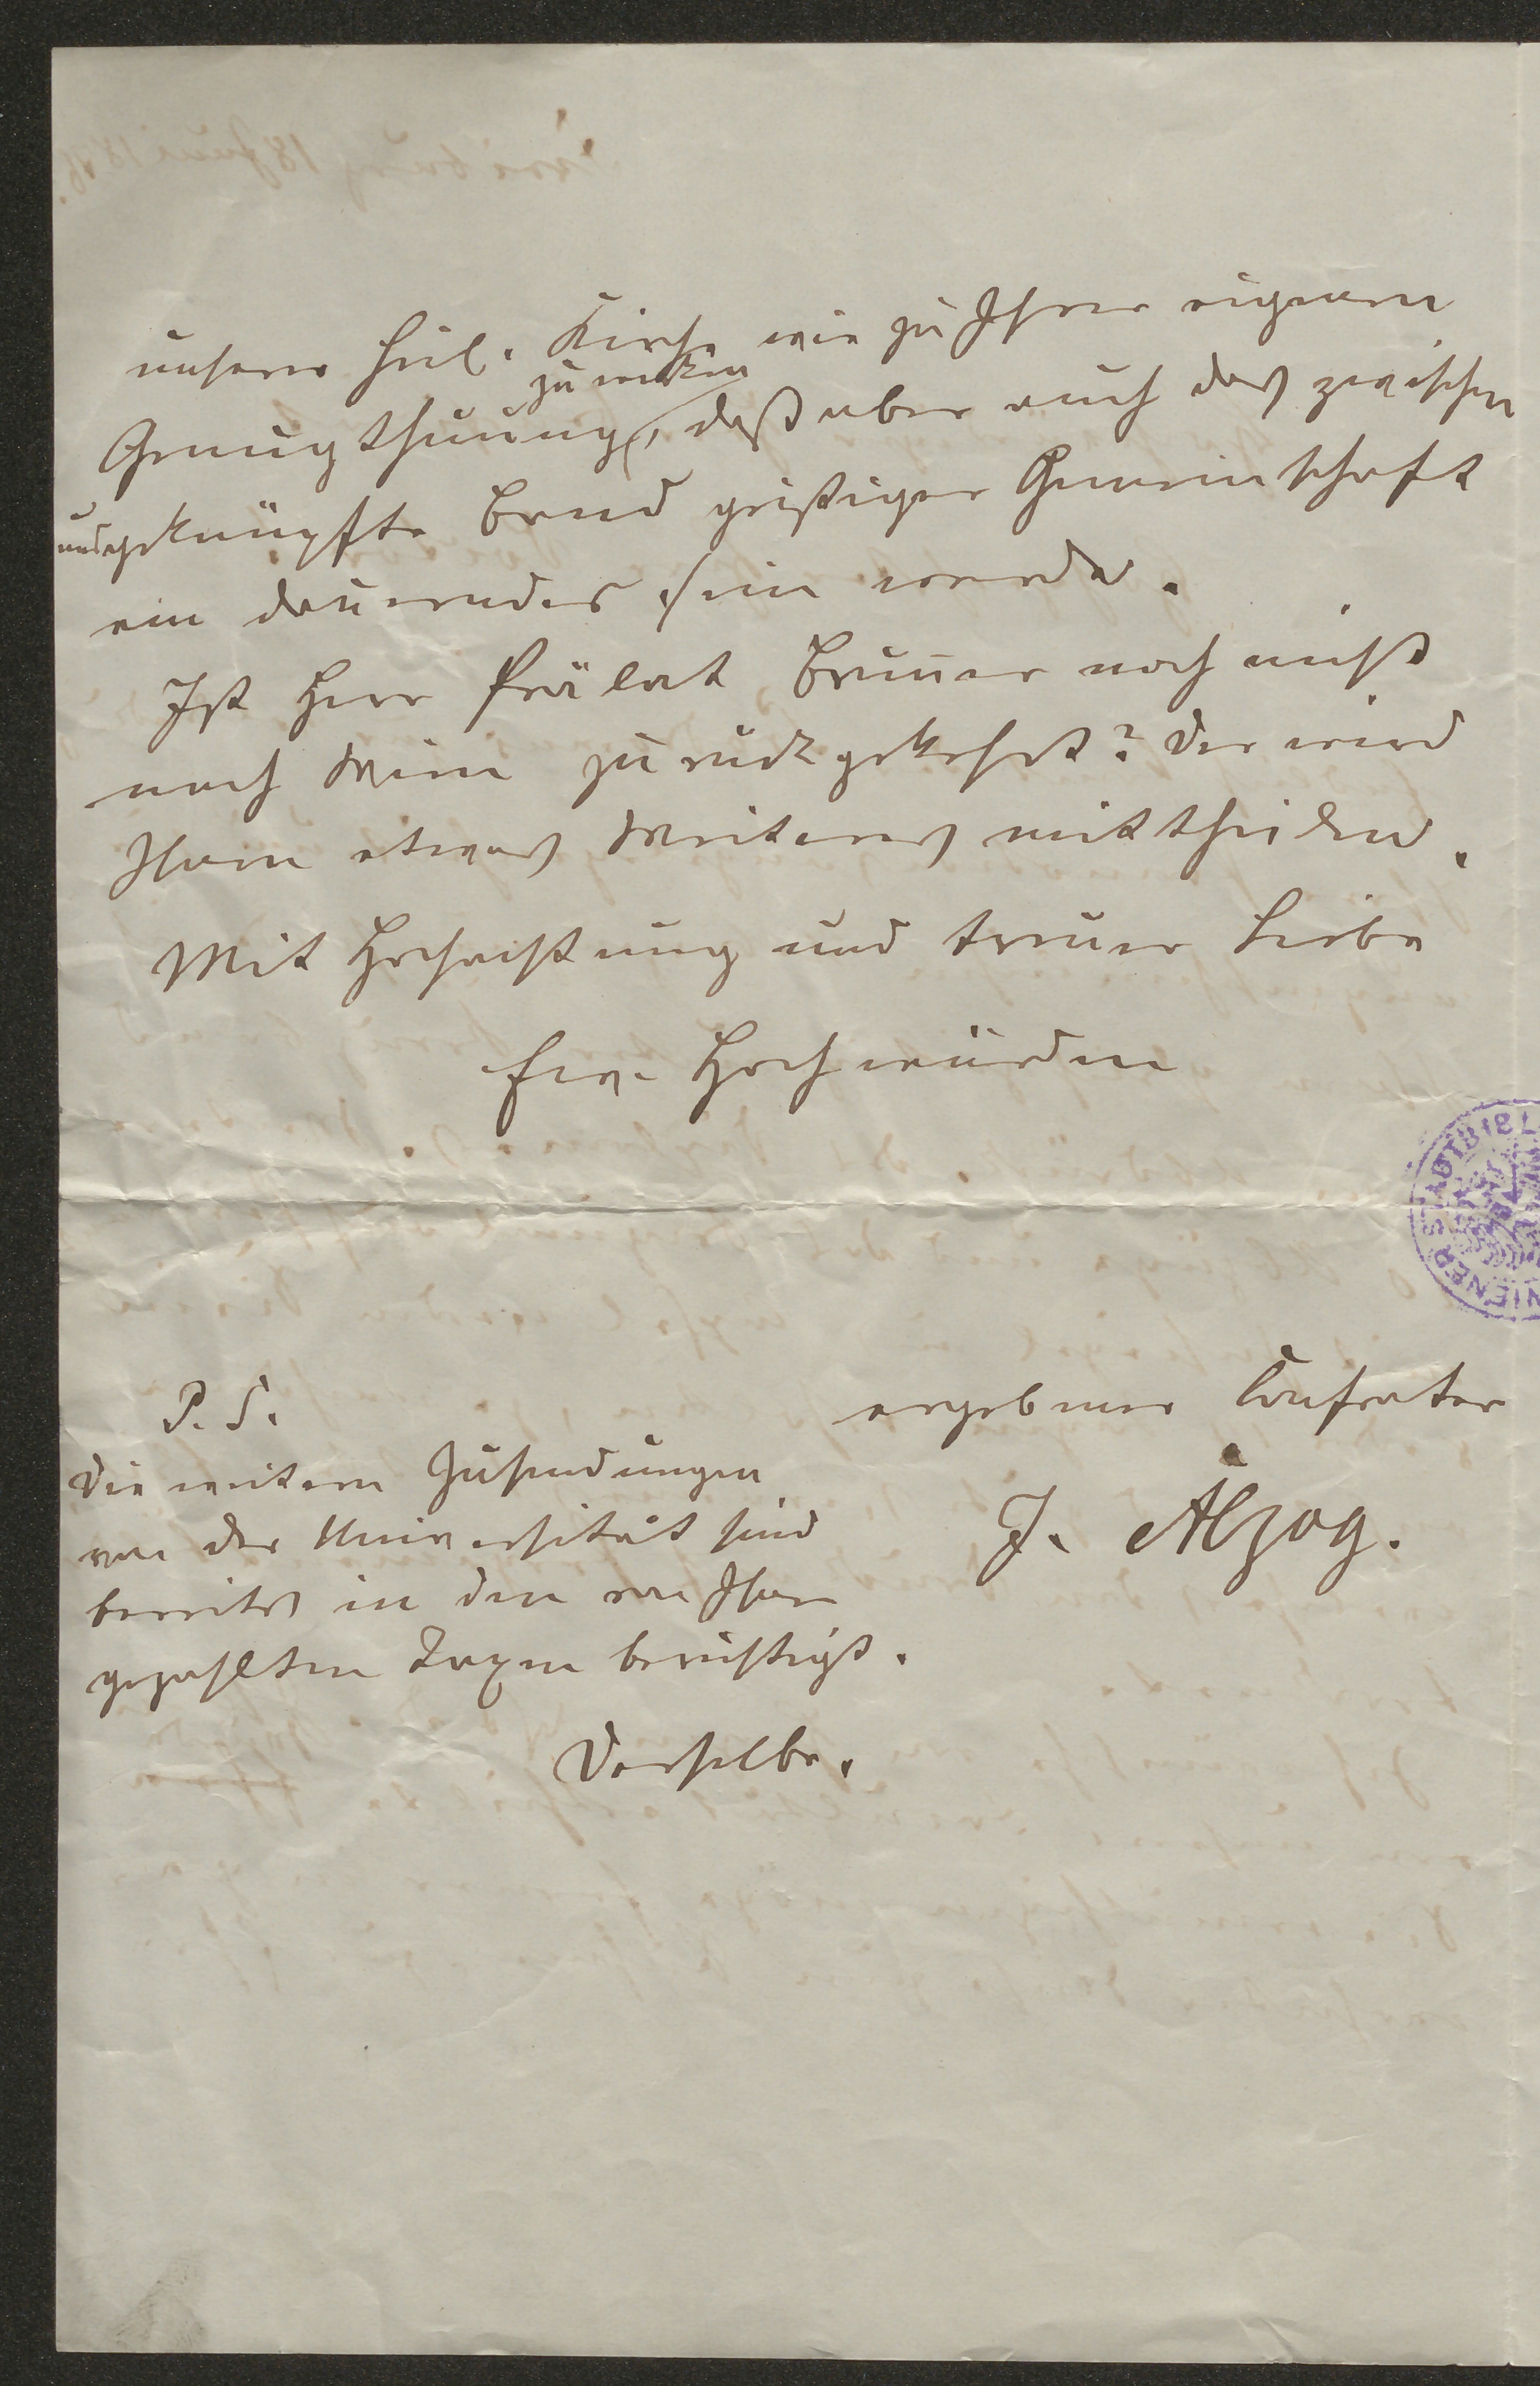 unserer heil. Kirche wie zu Ihrer eigenen
Genugthuung zu wirken, daß aber auch das zwischen
uns geknüpfte Band geistiger Gemeinschaft
ein dauerndes sein werde.
Ist Herr Prälat Bruner noch nicht
nach Wien zurückgekehrt? Der wird
Ihnen etwas Weiteres mittheilen.
Mit Hochachtung und treuer Liebe
Euer Hochwürden
ergebener Confrater
J. Alzog.
P. S.
Die weitern Zusendungen
von der Universität sind
bereits in den von Ihnen
gezahlten Taxen berichtigt.
Derselbe.
WIENER STADTBIBL